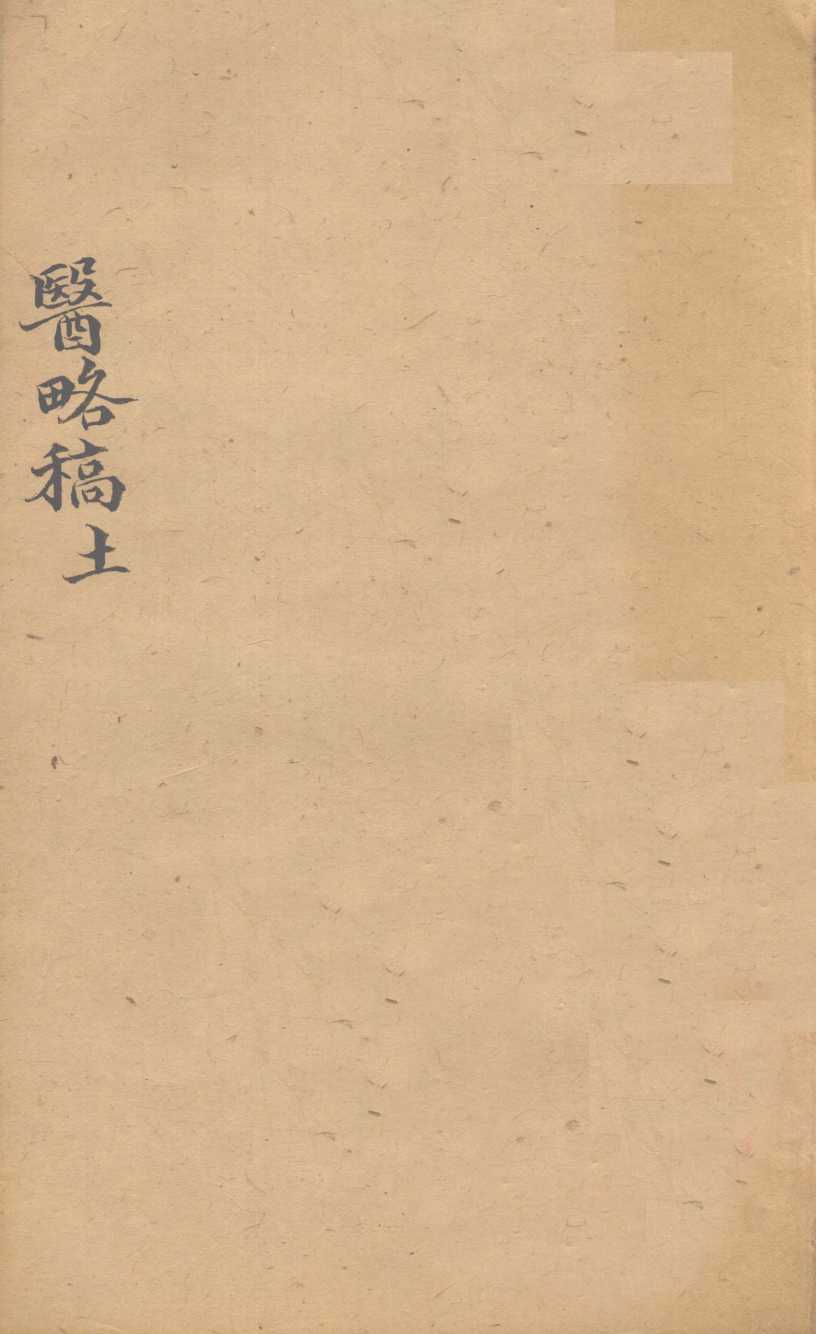 醫略稿土